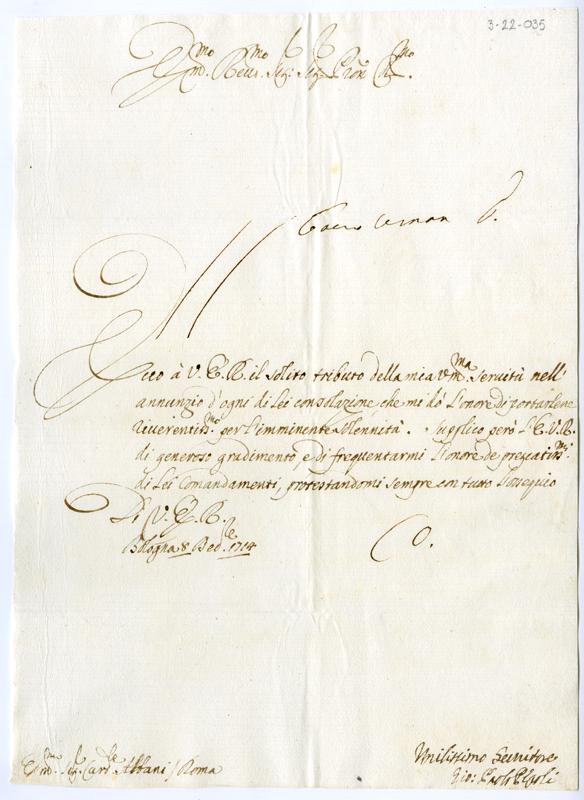 3-22-035
Em.mo Reu.mo Sig.r Sig.r Pron C.mo
Reco à V. E. R. il solito tributo della mia Vm.ma seruitù nell'
annunzio d'ogni di Lei consolazione che mi dò l'onore di portarlene
riuerentiss.mo per l'imminente solennità. Supplico però l'E.V.R.
di generoso gradimento, e di frequentarmi l'onore de preg.iatiss.mi
di Lei Comandamenti, protestandomi sempre con tutto l'ossequio
Di V. E. R.
Bologna 8 Dec.bre 1714
Em.mo Sig.r Card.le Albani / Roma
Vmilissimo Seruitore
Gio: Paolo Pepoli